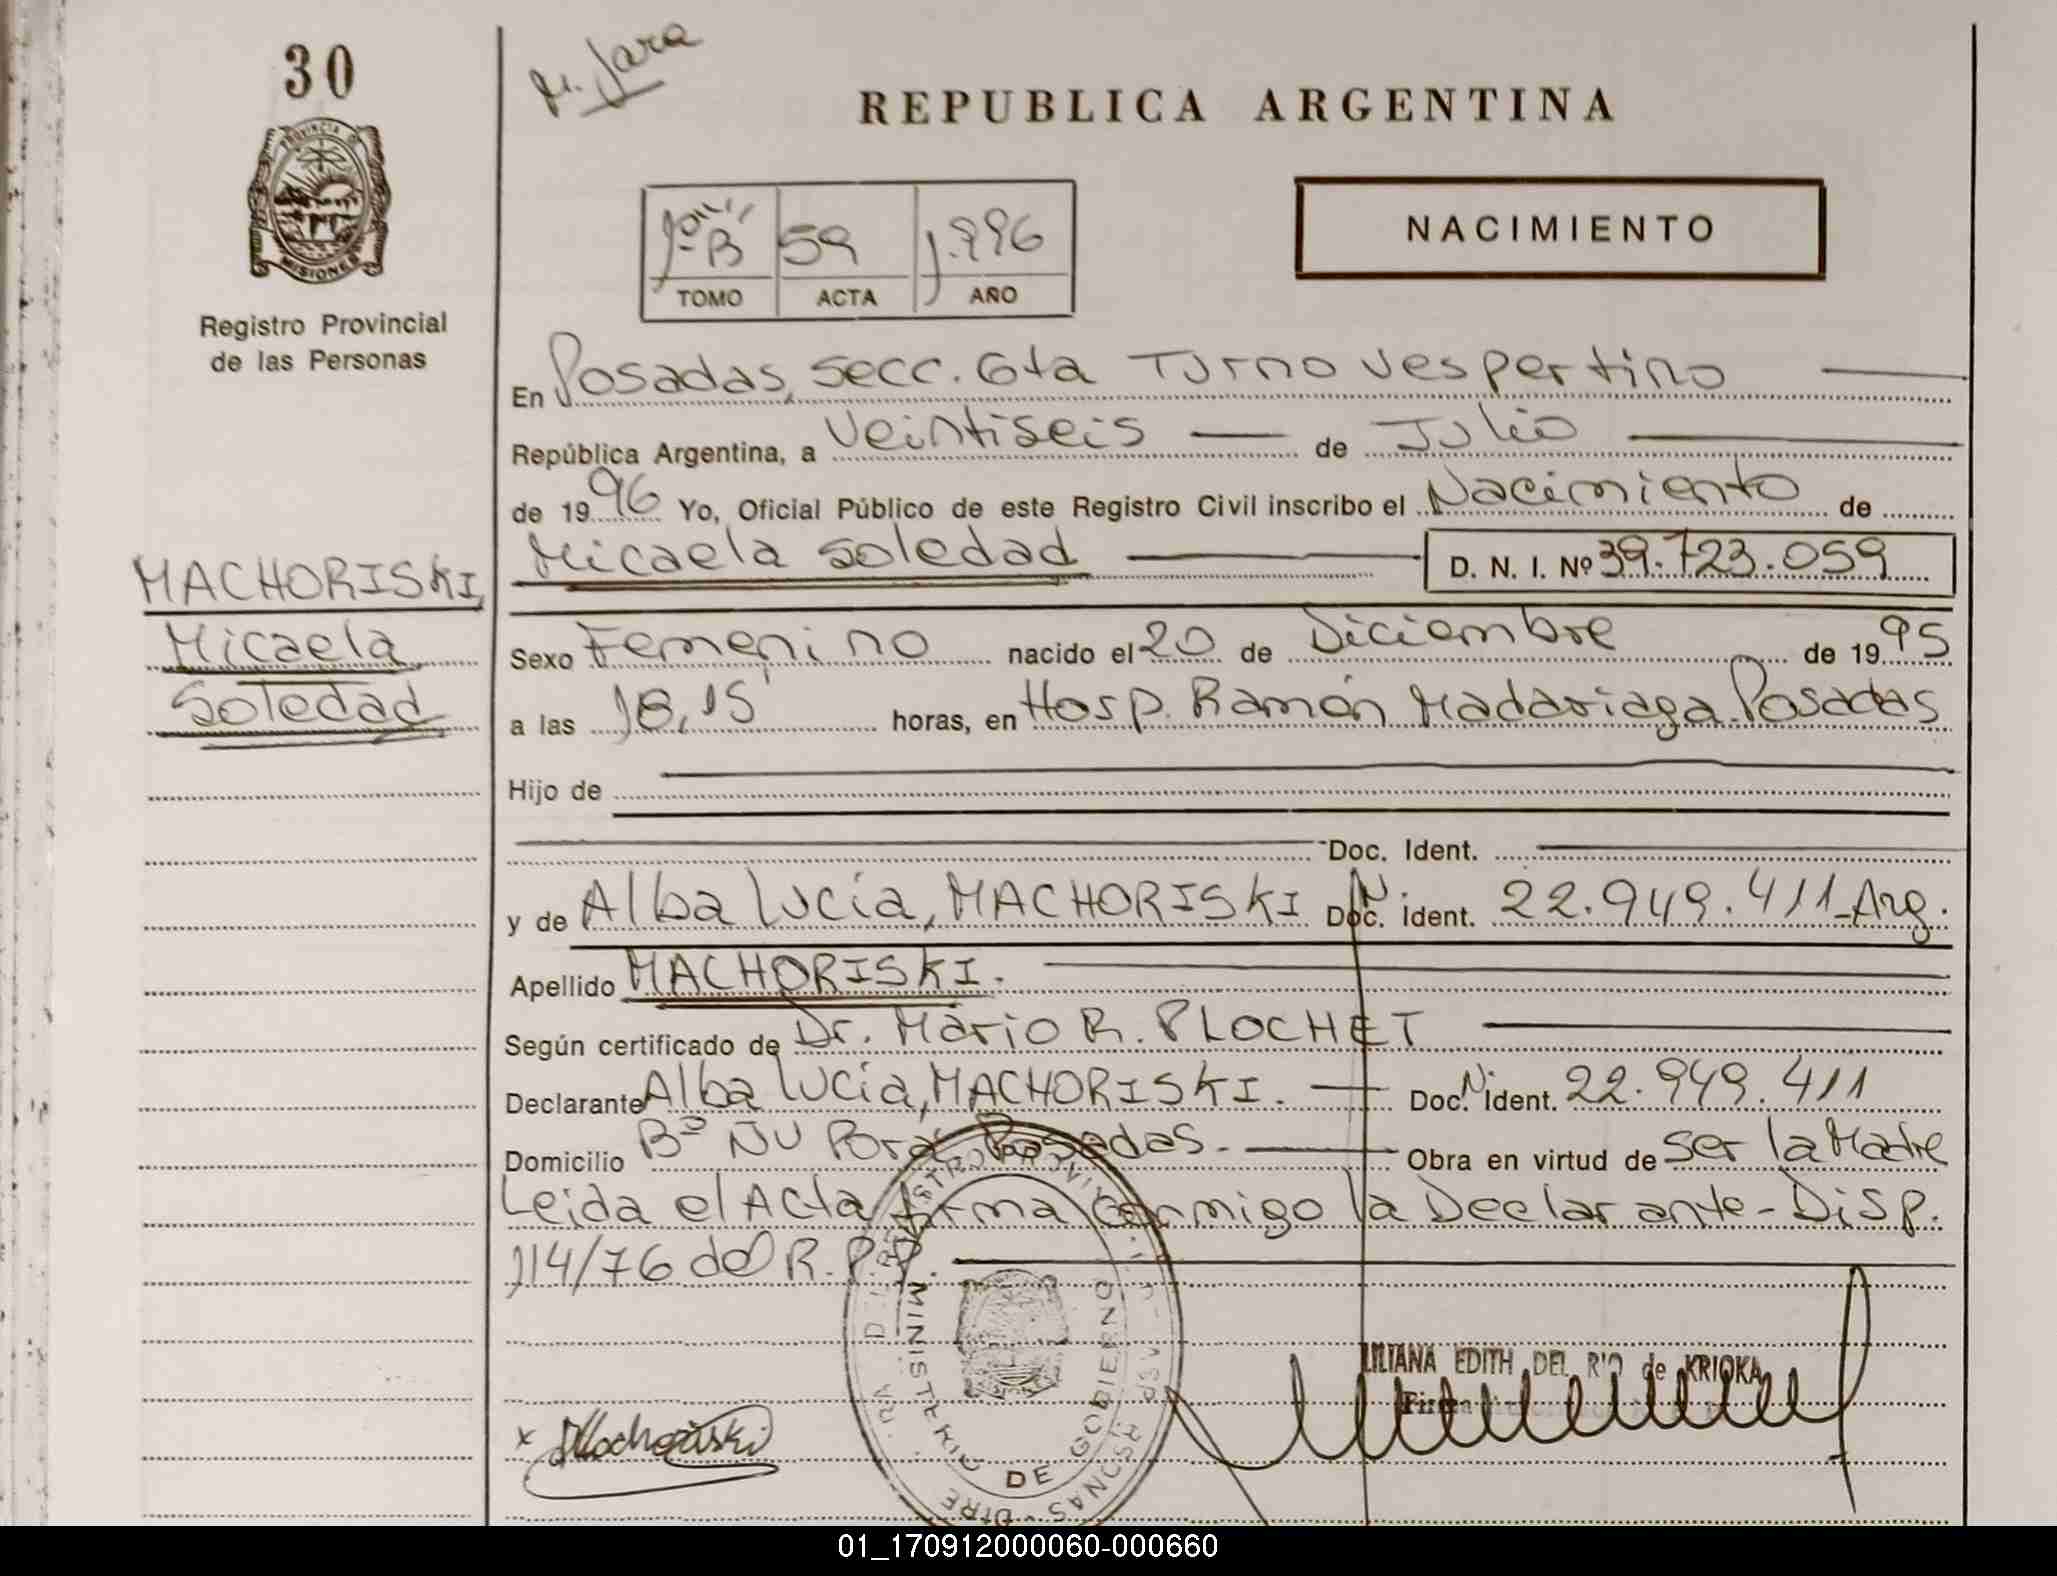 30
M. Jara
REPUBLICA ARGENTINA
PROVINCIA D
MISIONES
1º B 59 1.996
TOMO ACTA AÑO
NACIMIENTO
Registro Provincial
de las Personas
En Posadas, secc. 6ta Turno Vespertino
República Argentina, a Veintiseis de Julio
de 1996 Yo, Oficial Público de este Registro Civil inscribo el Nacimiento de
Micaela Soledad D. N. I. Nº 39.723.059
MACHORISKI,
Micaela
Soledad
Sexo Femenino nacido el 20 de Diciembre de 1995
a las 18,15' horas, en Hosp. Ramón Madariaga. Posadas
Hijo de
Doc. Ident.
y de Alba Lucía, MACHORISKI Doc. N. Ident. 22.949.411-Arg.
Apellido MACHORISKI.
Según certificado de Dr. Mario R. PLOCHET
Declarante Alba Lucía, MACHORISKI. Doc. N. Ident. 22.949.411
Domicilio Bº NU Porá Posadas. Obra en virtud de ser la Madre
Leida el Acta firma conmigo la Declarante - Disp.
114/76 del R.P.P.
MINISTERIO DE GOBIERNO
LILIANA EDITH DEL RIO de KRIOKA
Firma
x Machoriski
01_170912000060-000660